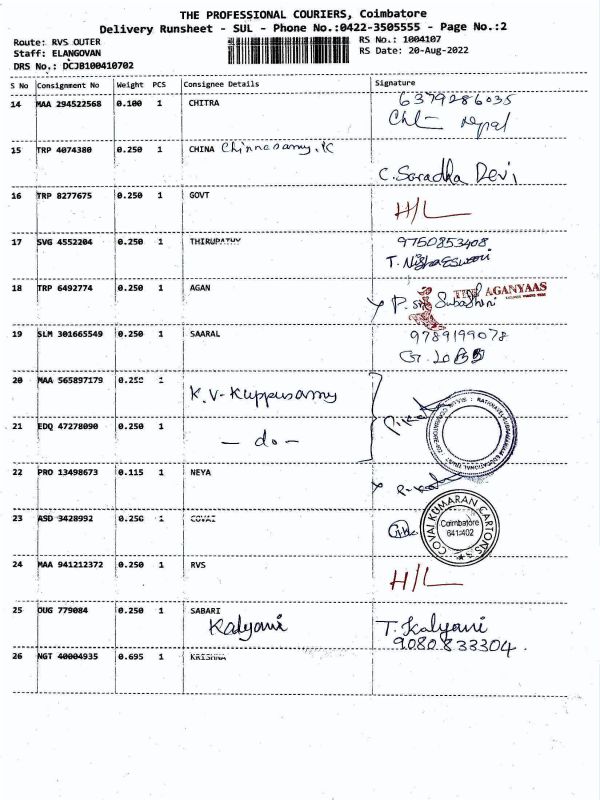 THE PROFESSIONAL COURIERS, Coimbatore
Delivery Runsheet - SUL - Phone No.:0422-3505555 - Page No.:2
Route: RVS OUTER
RS No.: 1004107
Staff: ELANGOVAN
RS Date: 20-Aug-2022
DRS No.: DCJB100410702
S No Consignment No Weight PCS Consignee Details Signature
14 MAA 294522568 0.100 1 CHITRA 6379286035
nepal
15 TRP 4074380 0.250 1 CHINA Chinnasamy.K
C. Saradha Devi
16 TRP 8277675 0.250 1 GOVT
H/L
17 SVG 4552204 0.250 1 THIRUPATHY 9750853408
T. Nishaeswari
18 TRP 6492774 0.250 1 AGAN AGANYAAS
P. Subashini
19 SLM 301665549 0.250 1 SAARAL 9789199078
20 MAA 565897179 0.250 1
K.V-Kuppusamy
21 EDQ 47278090 0.250 1
- do -
22 PRO 13498673 0.115 1 NEYA
23 ASD 3428992 0.250 1 COVAI
COVAI KUMARAN CARTONS
Coimbatore
641 402
24 MAA 941212372 0.250 1 RVS
H/L
25 OUG 779084 0.250 1 SABARI
Kalyani T. Kalyani
9080833304.
26 NGT 40004935 0.695 1 KRISHNA